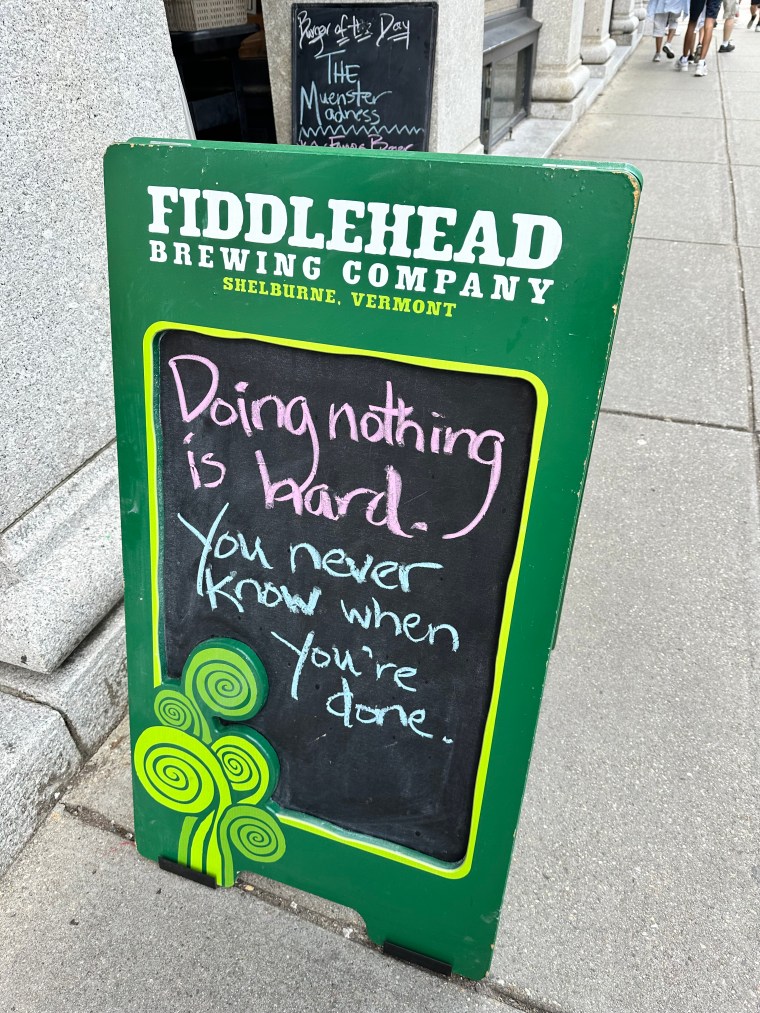 Burger of the Day
THE
Muenster
Madness
FIDDLEHEAD
BREWING COMPANY
SHELBURNE, VERMONT
Doing nothing
is hard.
You never
know when
you're
done.